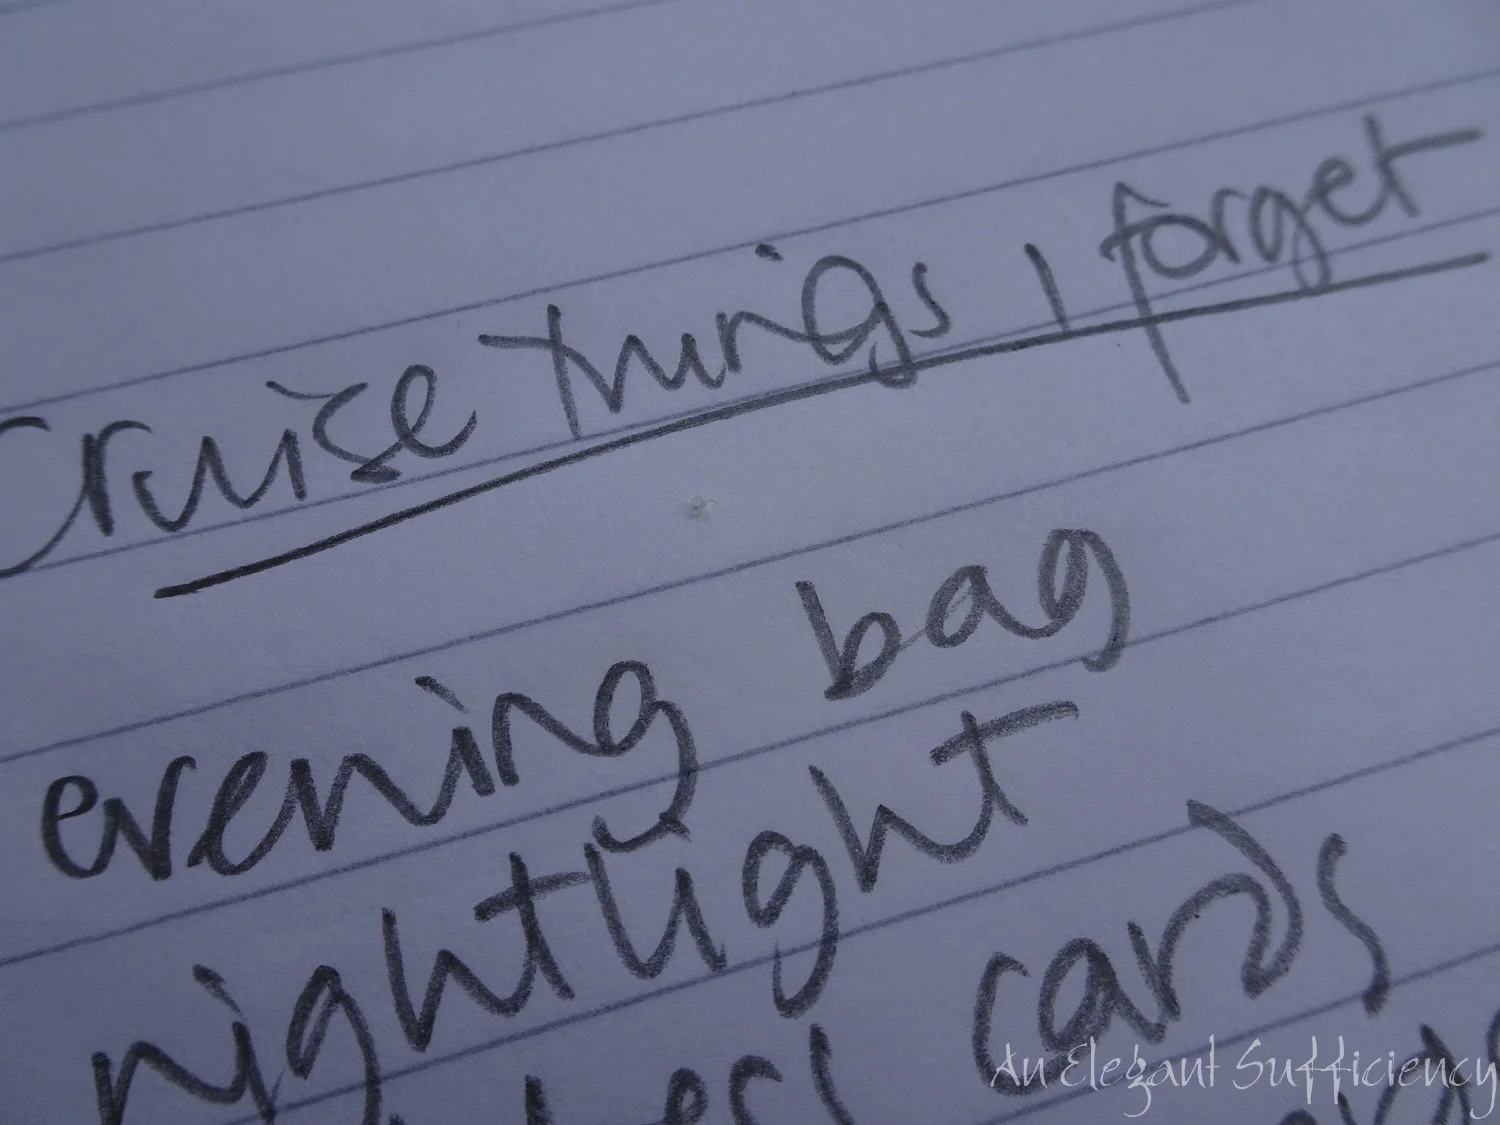 Cruise things I forget
evening bag
nightlight
cards
An Elegant Sufficiency